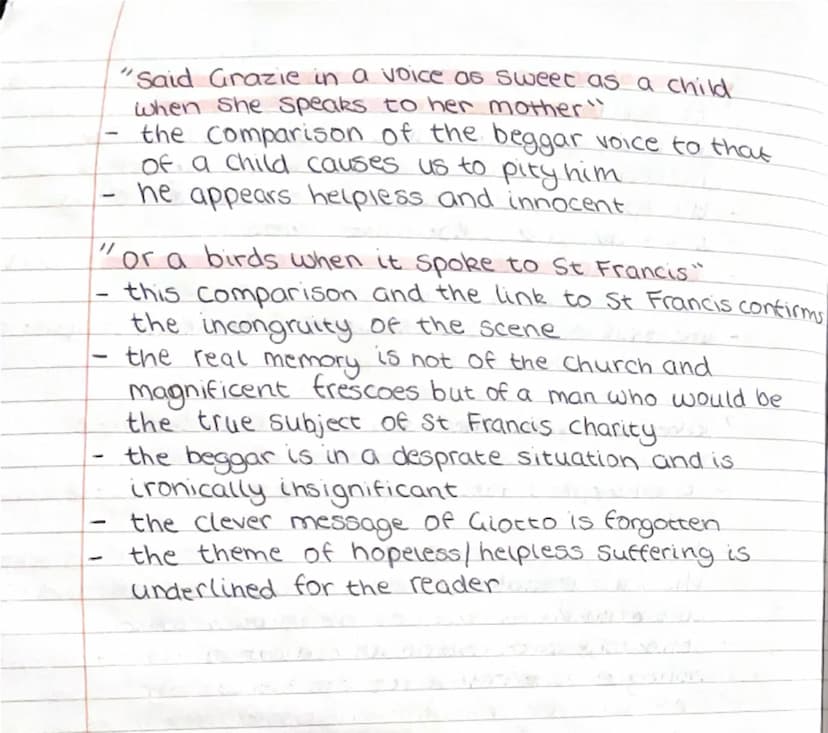 "Said Grazie in a voice as sweet as a child
when she speaks to her mother"
- the comparison of the beggar voice to that
of a child causes us to pity him
- he appears helpless and innocent
"or a birds when it spoke to St Francis"
- this comparison and the link to St Francis confirms
the incongruity of the scene
- the real memory is not of the church and
magnificent frescoes but of a man who would be
the true subject of St Francis charity
- the beggar is in a desprate situation and is
ironically insignificant
- the clever message of Giotto is forgotten
- the theme of hopeless/helpless suffering is
underlined for the reader